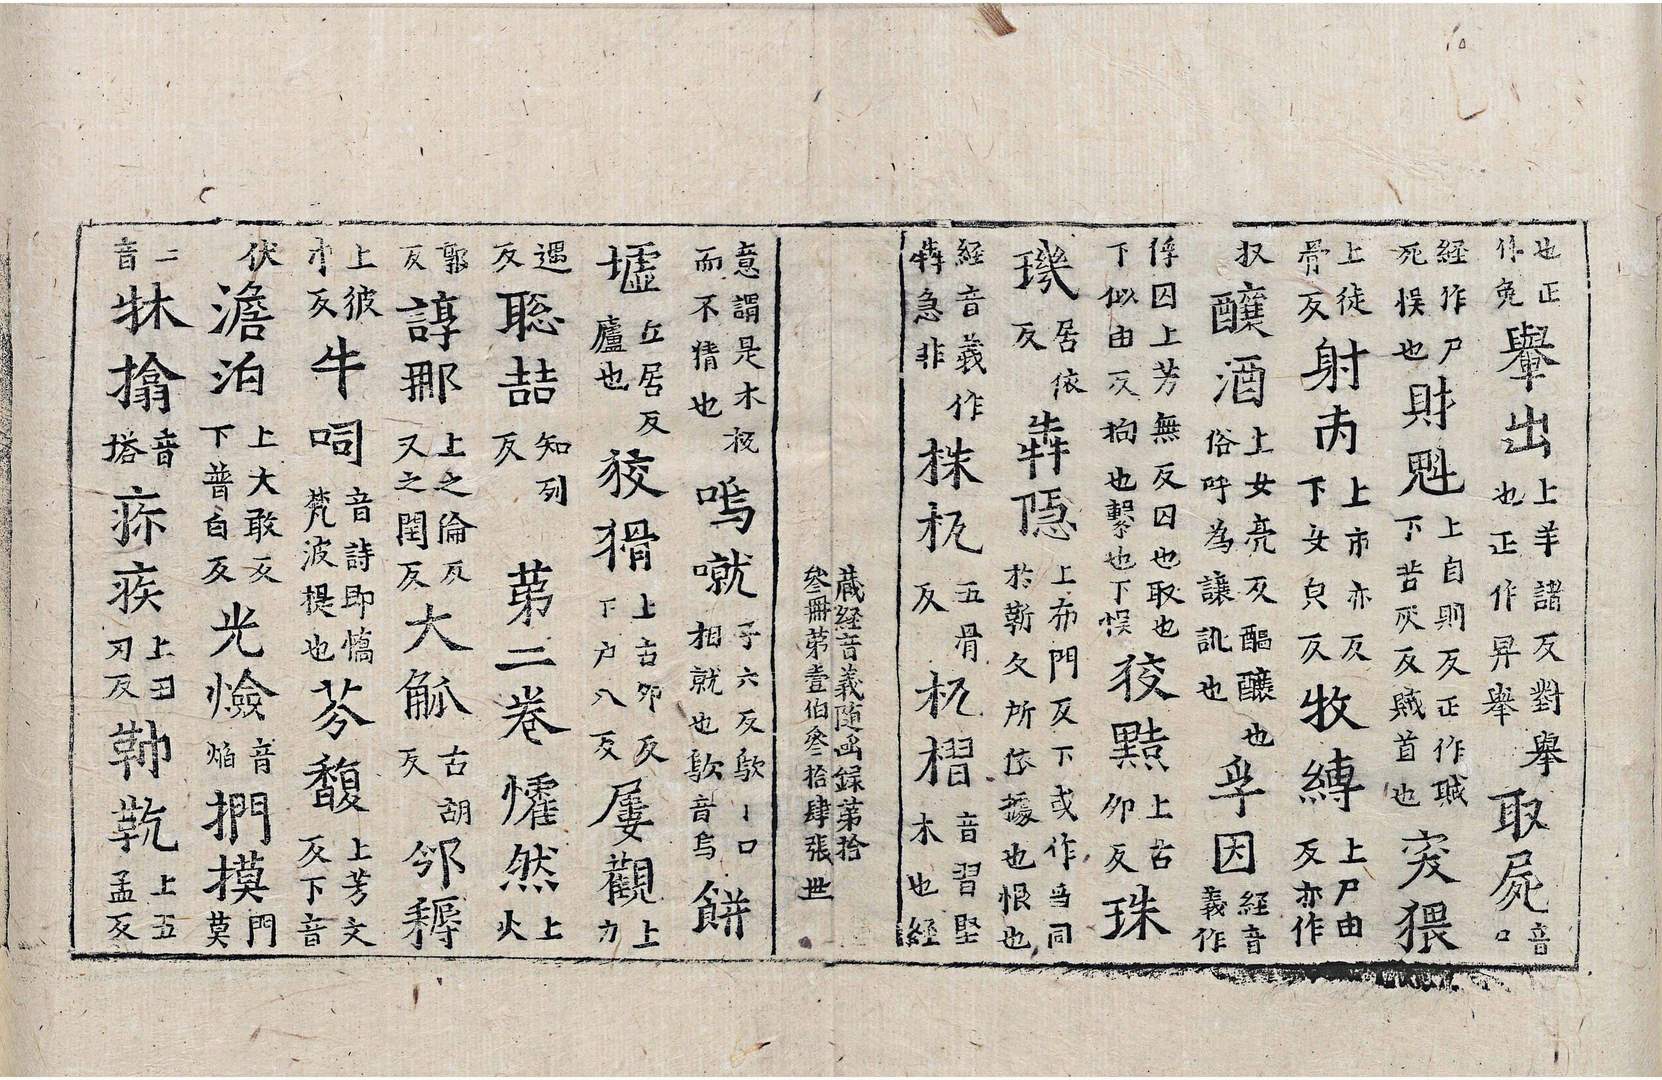 也正作兔轝出上羊諸反對舉也正作舁舉取屍音口
経作尸死悮也財魁上自則反正作賊下苦灰反賊首也突猥
上徒骨反射肉上市亦反下女㒵反牧縳上尸由反亦作
収釀酒上女亮反醖釀也俗呼為讓訛也孚因経音義作
俘囚上芳無反囚也取也下似由反拘也繫也下悮狡黠上古卯反珠
璣居依反犇隱上布門反下或作𡨴同於靳反所依據也恨也
経音義作犇急非株杌五骨反杌槢音習堅木也経
藏経音義随函録第拾
叄冊第壹伯叄拾肆張 世
意謂是木杌而不猜也嗚噈子六反歍〻口相就也歍音烏餅
墟丘居反廬也狡猾上古卯反下戸八反屢觀上力
遇反聡喆知列反 第二卷 懽然上火
郭反諄那上之倫反又之閏反大觚古胡反邠耨
上彼巾反牛呞音詩即憍梵波提也芬馥上芳文反下音
伏澹泊上大敢反下普白反光㷿音焰捫摸門莫
二音牀搚音塔疢疾上丑刃反鞕䩞上五孟反